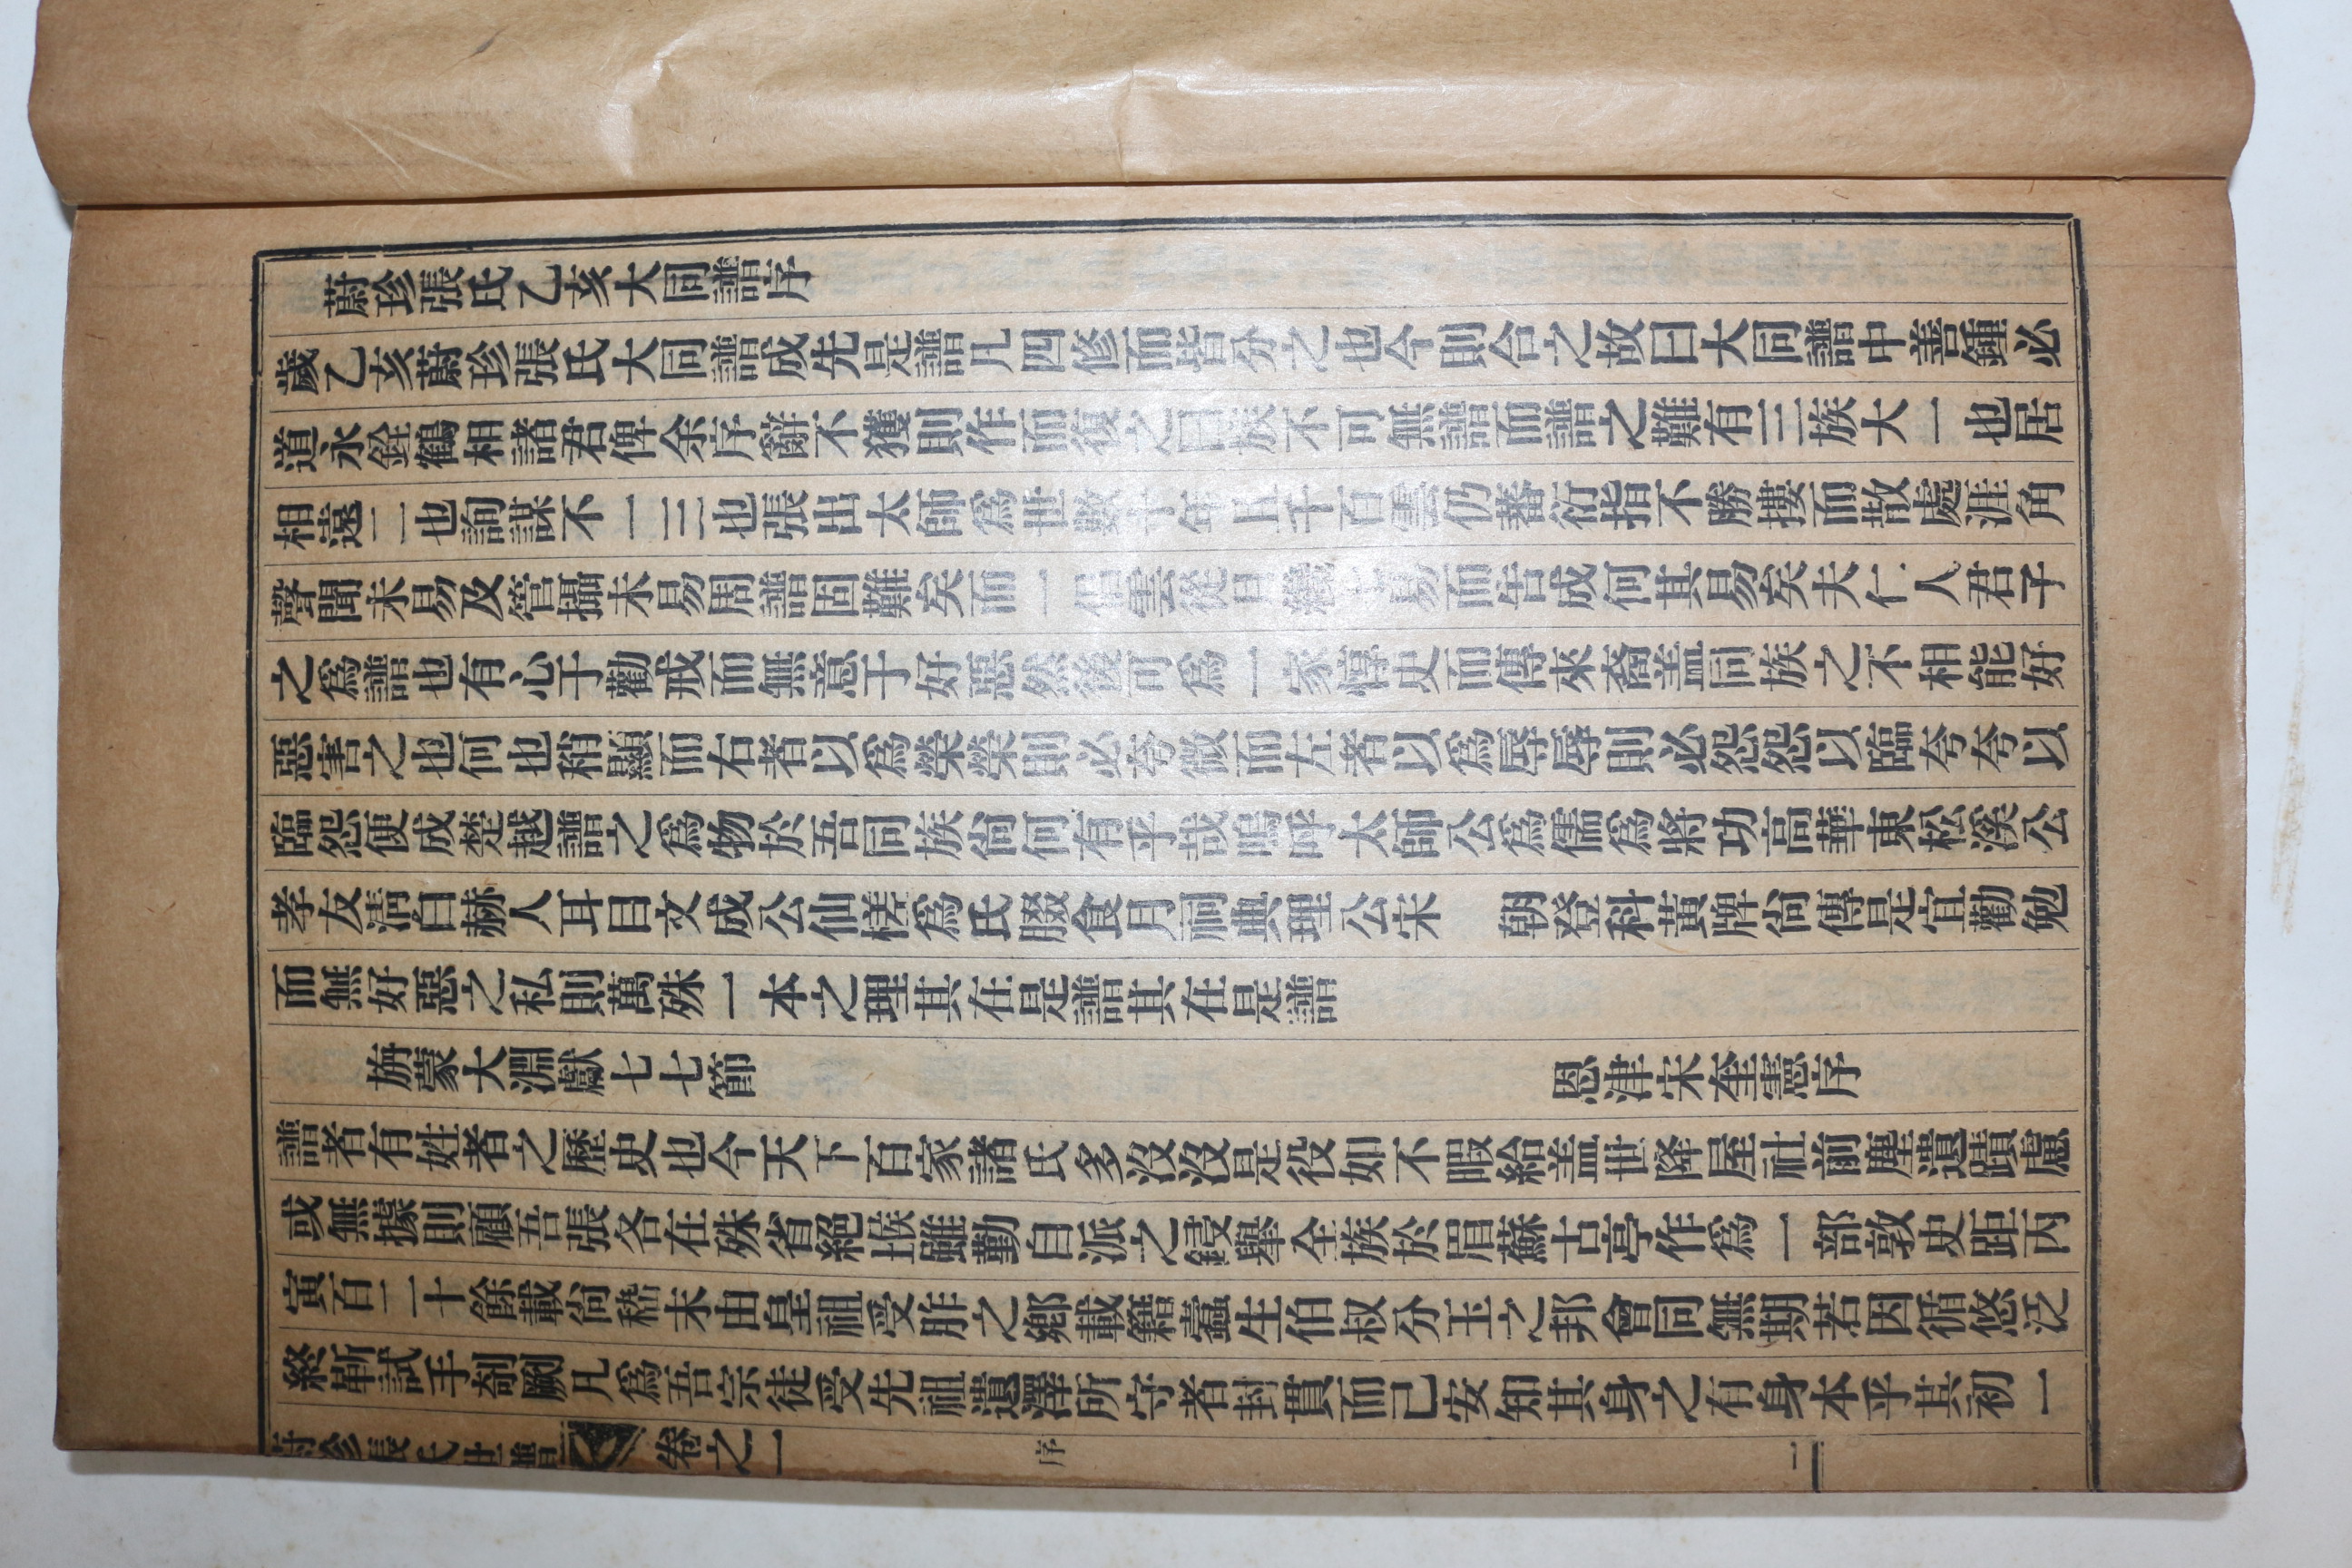 蔚珍張氏乙亥大同譜序
歲乙亥蔚珍張氏大同譜成先是譜凡四修而皆分之也今則合之故曰大同譜中善鍾必
道永銓鶴相諸君俾余序辭不獲則作而復之曰族不可無譜而譜之難有三族大一也居
相遠二也詢謀不一三也張出太師爲世數十年且千百雲仍蕃衍指不勝摟而散處涯角
聲聞未易及管攝未易周譜固難矣而一倡雲從曰易而告成何其易矣夫仁人君子
之爲譜也有心于勸戒而無意于好惡然後可爲一家惇史而傳來裔盖同族之不相能好
惡害之也何也稍顯而右者以爲榮榮則必夸微而左者以爲辱辱則必怨怨以臨夸夸以
臨怨便成楚越譜之爲物於吾同族尙何有乎哉嗚呼太師公爲儒爲將功高華東松溪公
孝友淸白赫人耳目文成公仙槎爲氏腏食月祠典理公宋 朝登科黃牌尙傳是宜勸勉
而無好惡之私則萬殊一本之理其在是譜其在是譜
旃蒙大淵獻七七節 恩津宋奎憲序
譜者有姓者之歷史也今天下百家諸氏多沒沒是役如不暇給盖世降屋社前塵遺蹟慮
或無據則顧吾張各在殊省絕堠雖勤自派之鋟擧全族於眉蘇古亭作爲一部敦史距丙
寅百二十餘載尙稽未由皇祖受胙之鄕載籍蠧生伯叔分玉之邦會同無期若因循悠泛
終靳試手剞劂凡爲吾宗徒受先祖遺澤所守者封貫而已安知其身之有身本乎其初一
蔚珍張氏世譜 卷之一 序 二